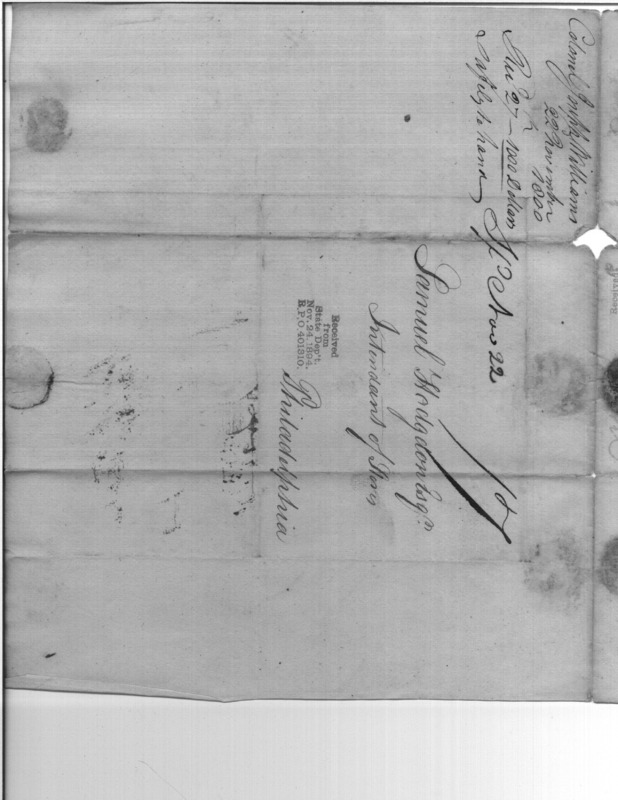 Colonel Jonth Williams
22 November
1800
Rec 27th — 1000 Dollars
Safely to hand
Sfd Nov 22
Samuel Hodgdon Esqr
Intendant of Stores
Philadelphia
Received
from
State Dep't.
Nov. 24, 1894.
R.P.O 401310.